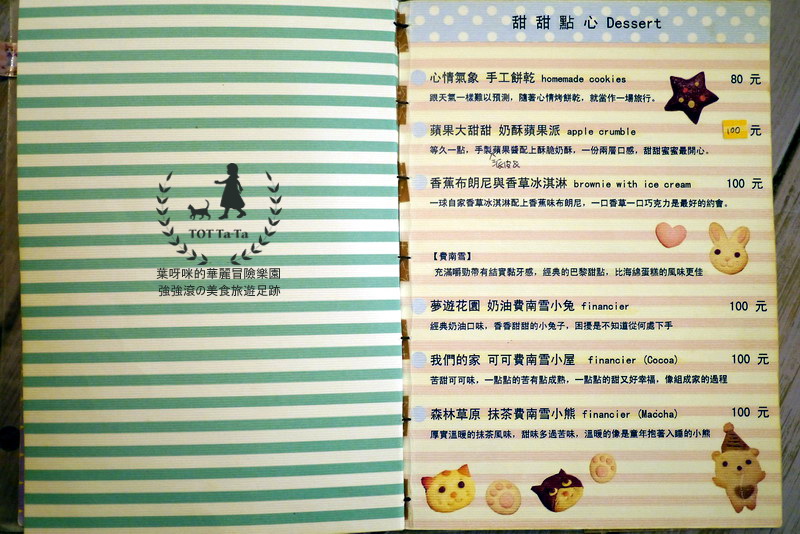 TOT Ta-Ta
葉呀咪的華麗冒險樂園
強強滾の美食旅遊足跡
甜甜點心 Dessert
心情氣象 手工餅乾 homemade cookies 80 元
跟天氣一樣難以預測，隨著心情烤餅乾，就當作一場旅行。
蘋果大甜甜 奶酥蘋果派 apple crumble 100 元
等久一點，手製蘋果醬配上酥脆奶酥，一份兩層口感，甜甜蜜蜜最開心。
派皮及
香蕉布朗尼與香草冰淇淋 brownie with ice cream 100 元
一球自家香草冰淇淋配上香蕉味布朗尼，一口香草一口巧克力是最好的約會。
【費南雪】
充滿嚼勁帶有結實黏牙感，經典的巴黎甜點，比海綿蛋糕的風味更佳
夢遊花園 奶油費南雪小兔 financier 100 元
經典奶油口味，香香甜甜的小兔子，困擾是不知道從何處下手
我們的家 可可費南雪小屋 financier (Cocoa) 100 元
苦甜可可味，一點點的苦有點成熟，一點點的甜又好幸福，像組成家的過程
森林草原 抹茶費南雪小熊 financier (Maccha) 100 元
厚實溫暖的抹茶風味，甜味多過苦味，溫暖的像是童年抱著入睡的小熊